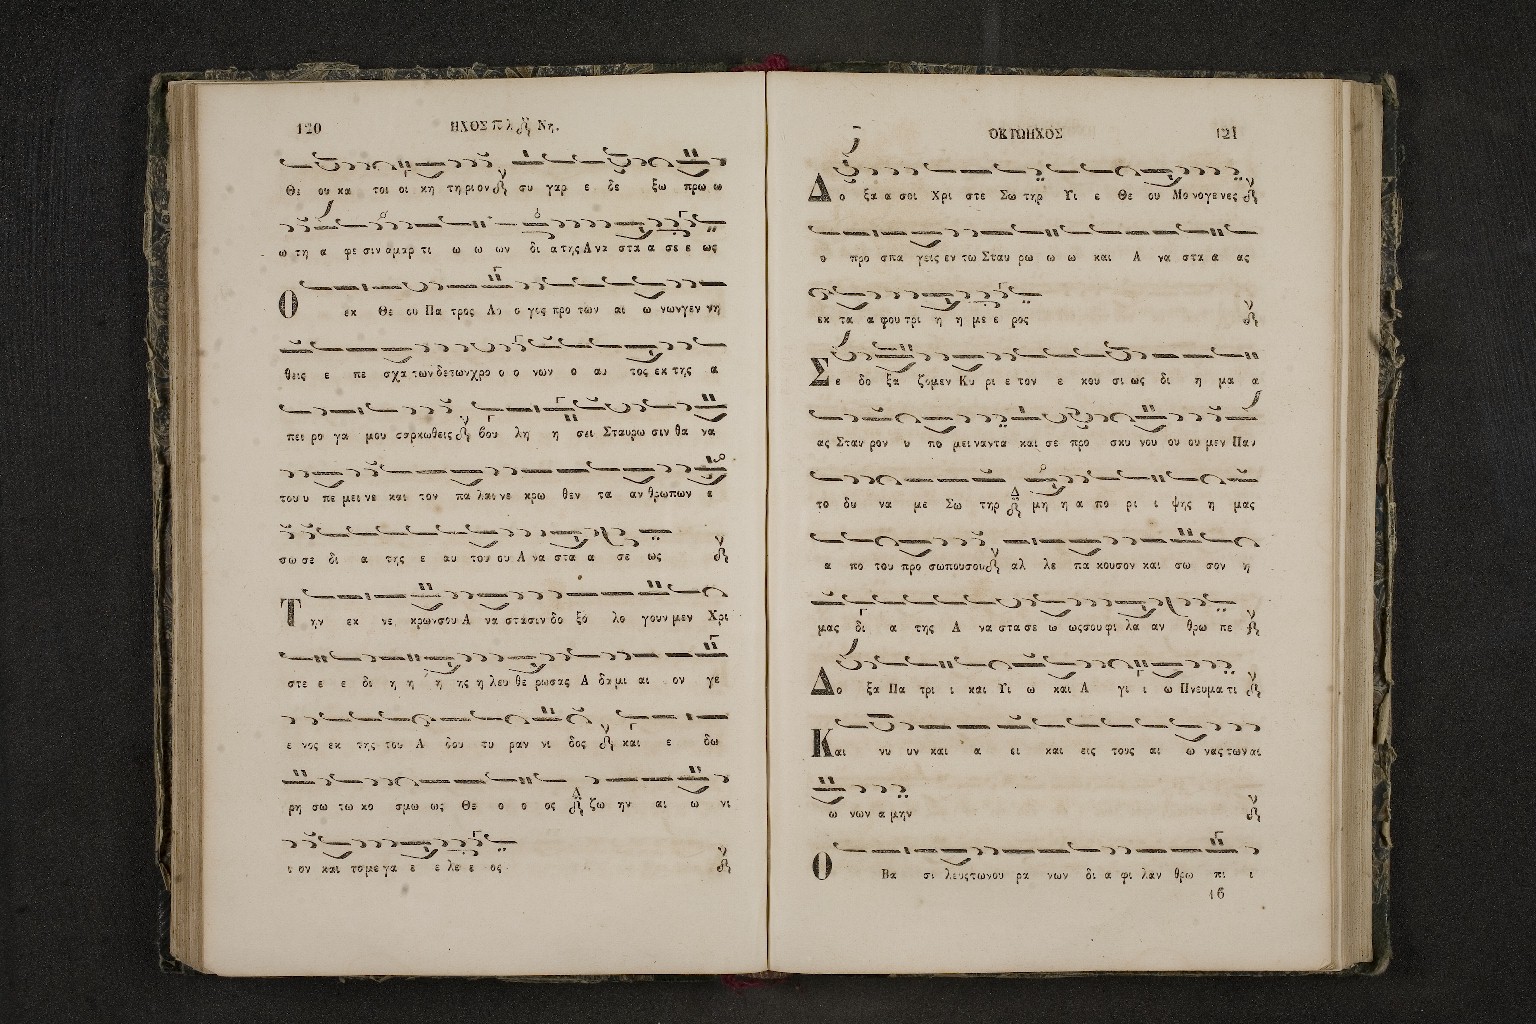 120 ΗΧΟΣ πλ Νη.
Θε ου κα τοι οι κη τη ρι ον συ γαρ ε δε ξω πρω ω
ω τη α φε σιν αμαρ τι ω ω ων δι α της Α να στα α σε ε ως
Ο εκ Θε ου Πα τρος Λο ο γος προ των αι ω νων γεν νη
θεις ε πε σχα των δε των χρο ο ο νων ο αυ τος εκ της α
πει ρο γα μου σαρκωθεις βου λη η σει Σταυρω σιν θα να
του υ πε μει νε και τον πα λαι νε κρω θεν τα αν θρωπων ε
σω σε δι α της ε αυ του ου Α να στα α σε ως
Την εκ νε κρων σου Α να στα σιν δο ξο λο γουν μεν Χρι
στε ε ε δι η η η ης η λευ θε ρωσας Α δα μι αι ον γε
ε νος εκ της του Α δου τυ ραν νι δος και ε δω
ρη σω τω κο σμω ως Θε ο ο ος ζω ην αι ω νι
ι ον και το με γα ε ε λε ε ος
ΟΚΤΩΗΧΟΣ 121
Δο ξα α σοι Χρι στε Σω τηρ Υι ε Θε ου Μο νο γε νες
ο προ σπα γεις εν τω Σταυ ρω ω ω και Α να στα α ας
εκ τα α φου τρι η η με ε ρος
Σε δο ξα ζομεν Κυ ρι ε τον ε κου σι ως δι η μα α
ας Σταυ ρον υ πο μει ναντα και σε προ σκυ νου ου ου μεν Παν
το δυ να με Σω τηρ μη η α πο ρι ι ψης η μας
α πο του προ σωπου σου αλ λε πα κουσον και σω σον η
μας δι α της Α να στα σε ω ως σου φι λα αν θρω πε
Δο ξα Πα τρι ι και Υι ω και Α γι ι ω Πνευμα τι
Και νυ υν και α ει και εις τους αι ω νας των αι
ω νων α μην
Ο Βα σι λευς των ου ρα νων δι α φι λαν θρω πι ι
16